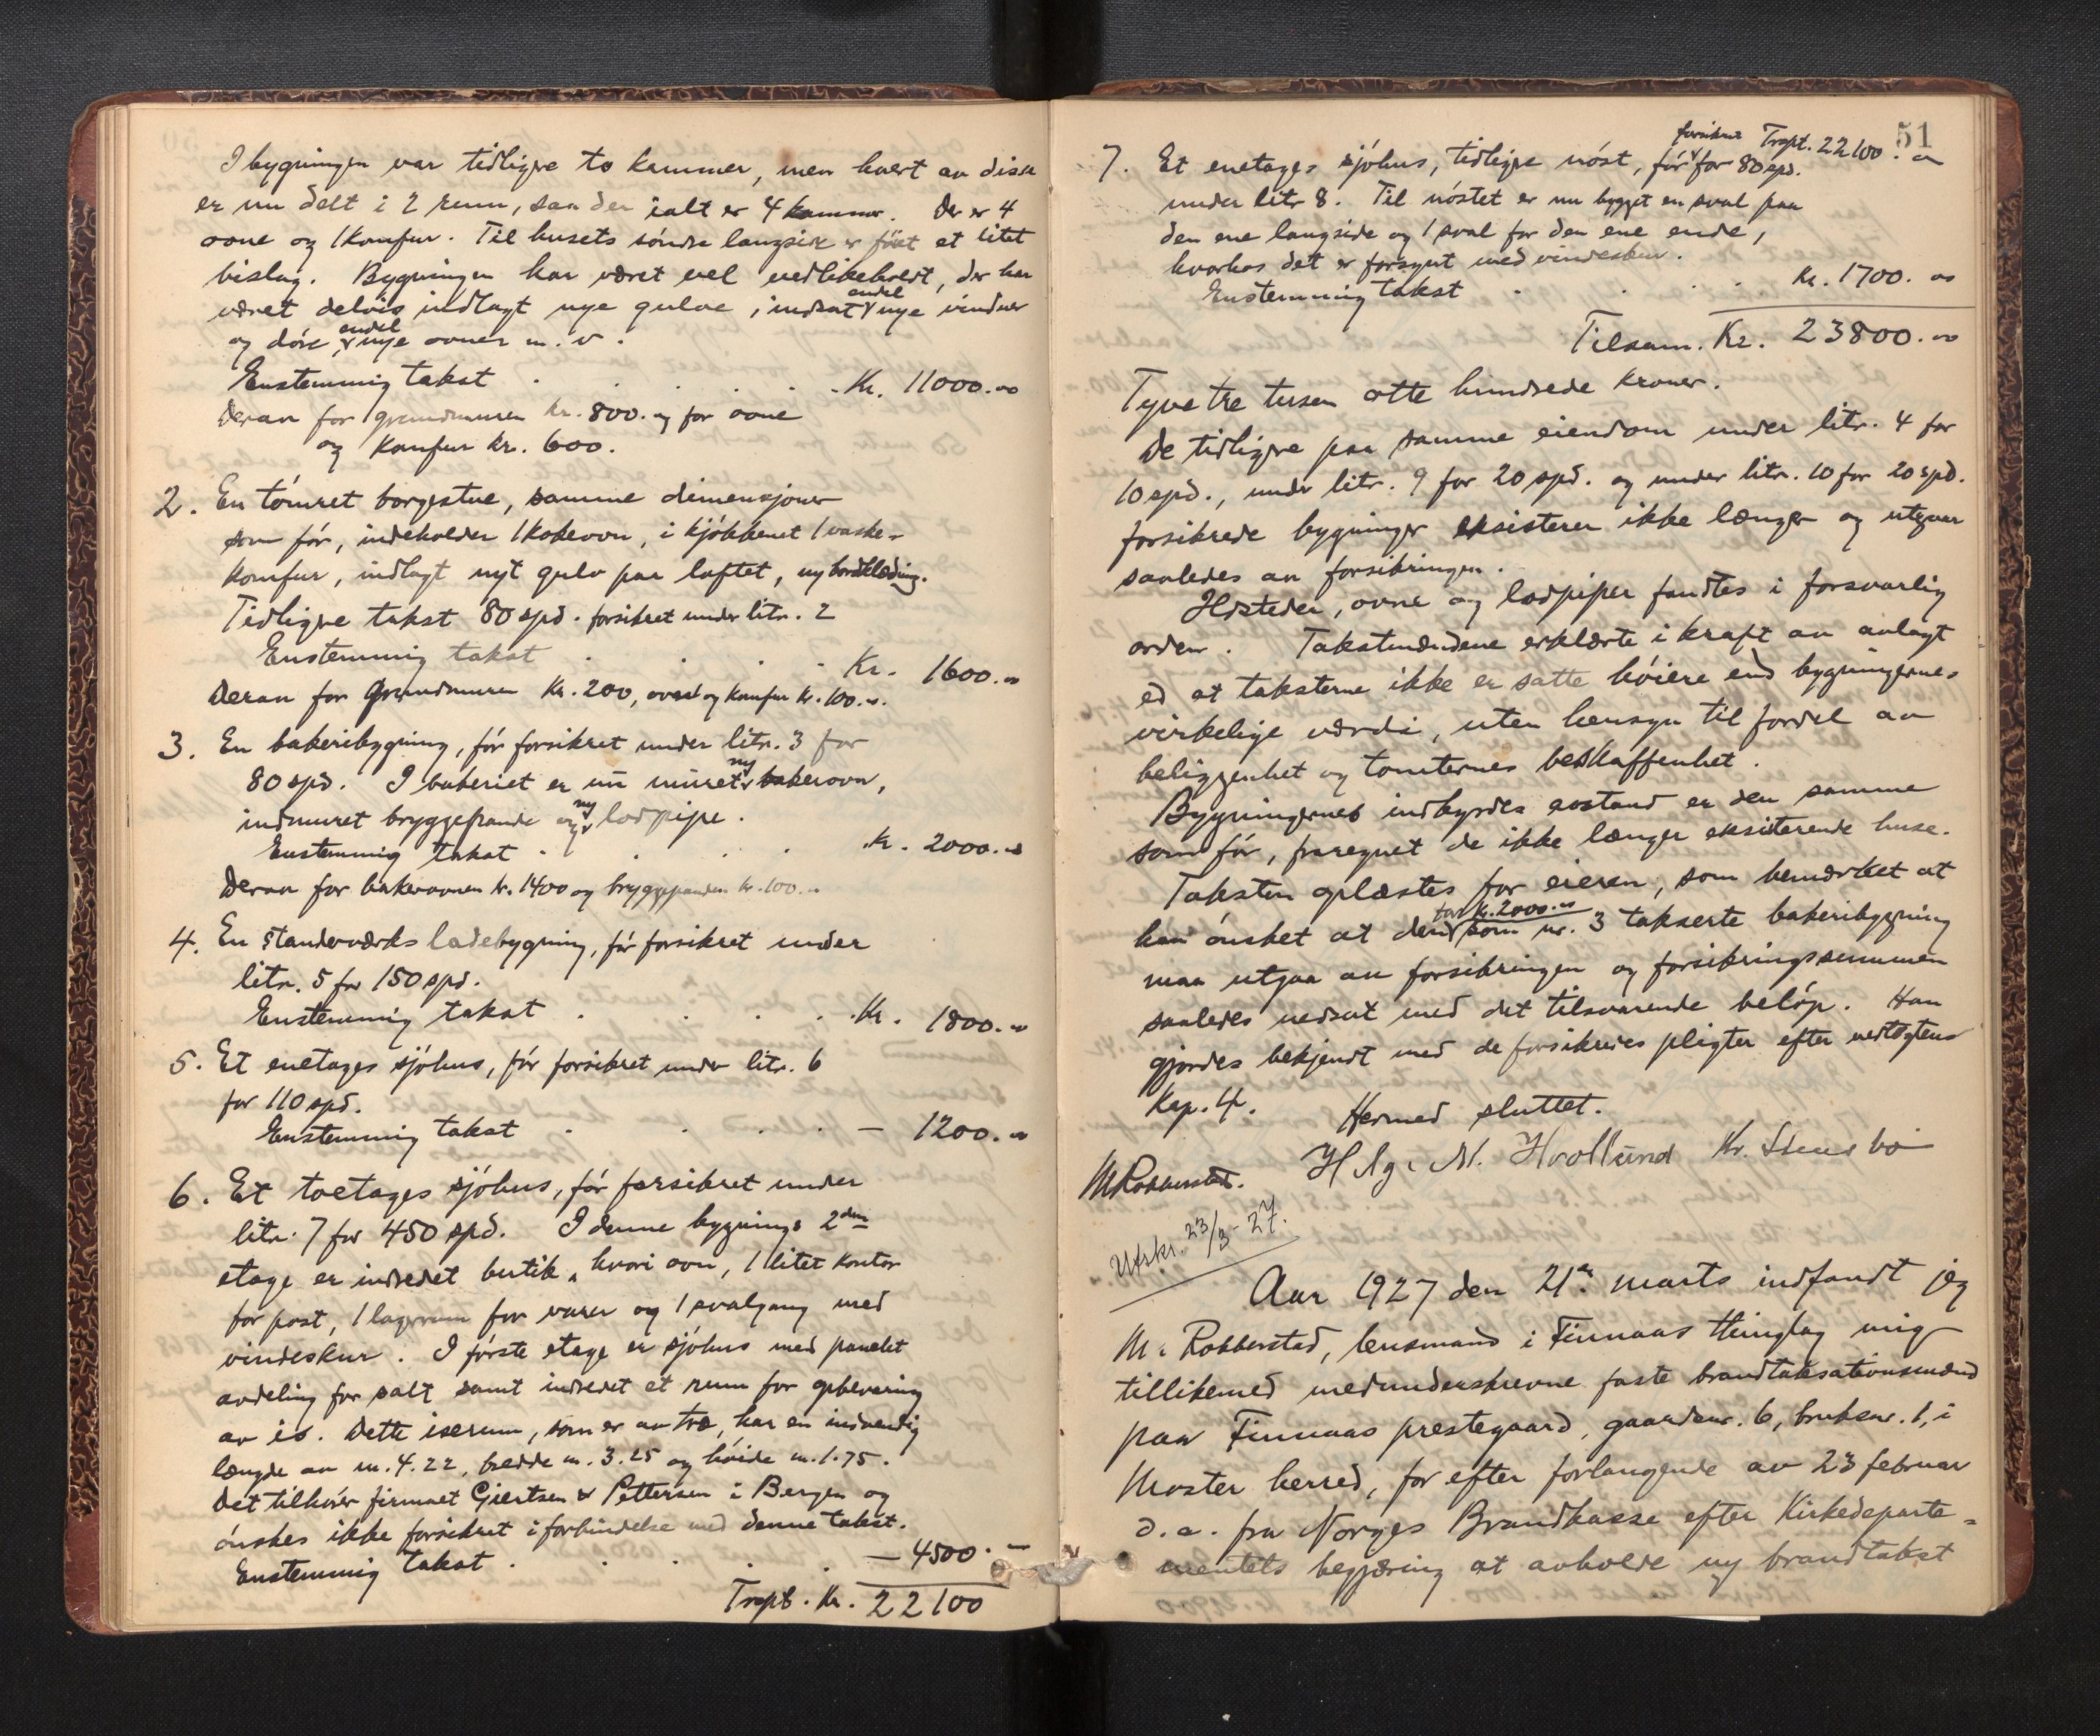 I bygningen var tidligre to kammer, men hvert av disse
er nu delt i 2 rum, saa der ialt er 4 kammer. Der er 4
ovne og 1 komfur. Til husets söndre langside er föiet et litet
bislag. Bygningen har været vel vedlikeholdt, der har
været delvis indlagt nye gulve, indsat endel nye vinduer
og döre, endel nye ovner m. v.
Enstemmig takst . . . . . Kr. 11000.00
Derav for grundmuren kr. 800. og for ovne
og komfur kr. 600.
2. En tömret borgestue, samme dimensjoner
som för, indeholder 1 kokeovn, i kjökkenet 1 vaske-
komfur, indlagt nyt gulv paa loftet, ny bordklædning.
Tidligre takst 80 spd. forsikret under litr. 2
Enstemmig takst . . . . Kr. 1600.00
Derav for grundmuren Kr. 200, ovn og komfur kr. 100.00.
3. En bakeribygning, för forsikret under litr. 3 for
80 spd. I bakeriet er nu muret ny bakerovn,
indmuret bryggepande og ny lodpipe.
Enstemmig takst . . . . Kr. 2000.00
Derav for bakerovnen kr. 1400 og bryggepanden kr. 100.00
4. En standerværks ladebygning, för forsikret under
litr. 5 for 150 spd.
Enstemmig takst . . . . Kr. 1800.00
5. Et enetages sjöhus, för forsikret under litr. 6
for 110 spd.
Enstemmig takst . . . . — 1200.00
6. Et toetages sjöhus, för forsikret under
litr. 7 for 450 spd. I denne bygnings 2den
etage er indredet butik, hvori ovn, 1 litet kontor
for post, 1 lagerrum for varer og 1 svalgang med
vindeskur. I förste etage er sjöhus med panelet
avdeling for salt samt indredet et rum for opbevaring
av is. Dette iserum, som er av træ, har en indvendig
længde av m. 4.22, bredde m. 3.25 og höide m. 1.75.
Det tilhörer firmaet Giertsen & Pettersen i Bergen og
önskes ikke forsikret i forbindelse med denne takst.
Enstemmig takst . . . . — 4500. —
Trspt. Kr. 22100
51
Trspt. 22100.00
7. Et enetages sjöhus, tidligre nöst, för forsikret for 80 spd.
under litr 8. Til nöstet er nu bygget en sval paa
den ene langside og 1 sval for den ene ende,
hvorhos det er forsynt med vindeskur.
Enstemmig takst . . . . Kr. 1700.00
Tilsam. Kr. 23800.00
Tyve tre tusen otte hundrede kroner.
De tidligre paa samme eiendom under litr. 4 for
10 spd., under litr. 9 for 20 spd. og under litr. 10 for 20 spd.
forsikrede bygninger eksisterer ikke længer og utgaar
saaledes av forsikringen.
Ildsteder, ovne og lodpiper fandtes i forsvarlig
orden. Takstmændene erklærte i kraft av avlagt
ed at taksterne ikke er satte höiere end bygningernes
virkelige værdi, uten hensyn til fordel av
beliggenhet og tomternes beskaffenhet.
Bygningernes indbyrdes avstand er den samme
som för, fraregnet de ikke længer eksisterende huse.
Taksten oplæstes for eieren, som bemærket at
han önsket at den for kr. 2000.00 som nr. 3 takserte bakeribygning
maa utgaa av forsikringen og forsikringssummen
saaledes nedsat med det tilsvarende belöp. Han
gjordes bekjendt med de forsikredes pligter efter vedtögtens
Kap. 4. Hermed sluttet.
M Robberstad. Helge M. Hvollund Kr. Stensbö
Utskr. 23/3-27.
Aar 1927 den 21de marts indfandt jeg
M. Robberstad, lensmand i Finnaas thinglag mig
tillikemed medunderskrevne faste brandtaksationsmænd
paa Finnaas prestegaard, gaardsnr. 6, bruksnr. 1, i
Moster herred, for efter forlangende av 23 februar
d. a. fra Norges Brandkasse efter Kirkedeparte-
mentets begjæring at avholde ny brandtakst